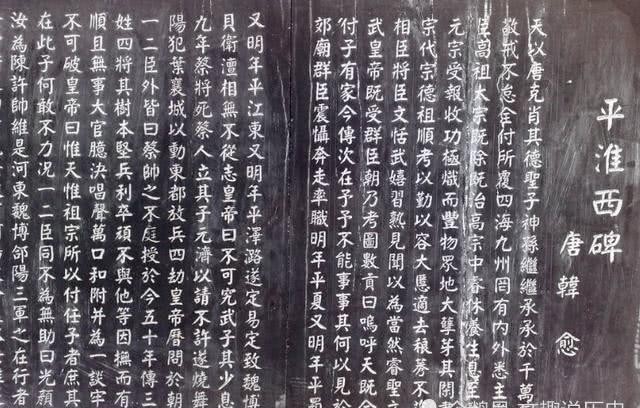 平淮西碑
唐韓愈
天以唐克肖其德聖子神孫繼繼承承於千萬
敬戒不怠全付所覆四海九州罔有內外悉主
臣高祖太宗既除既治高宗中睿休養生息至
元宗受報收功極熾而豐物眾地大孽芽其間
宗代宗德祖順考以勤以容大慝適去稂莠不
相臣將臣文恬武嬉習熟見聞以為當然睿聖
武皇帝既受群臣朝乃考圖數貢曰嗚呼天既全
付予有家今傳次在予予不能事事其何以見於
郊廟群臣震懾奔走率職明年平夏又明年平蜀
又明年平江東又明年平澤潞遂定易定致魏博
貝衛澶相無不從志皇帝曰不可究武予其少息
九年蔡將死蔡人立其子元濟以請不許遂燒舞
陽犯葉襄城以動東都放兵四劫皇帝曆問於朝
一二臣外皆曰蔡帥之不庭授於今五十年傳三
姓四將其樹本堅兵利卒頑不與他等因撫而有
順且無事大官臆決唱聲萬口和附并為一談牢
不可破皇帝曰惟天惟祖宗所以付任予者庶其
在此予何敢不力況一二臣同不為無助曰光顏
汝為陳許帥維是河東魏博郃陽三軍之在行者
趣说历史